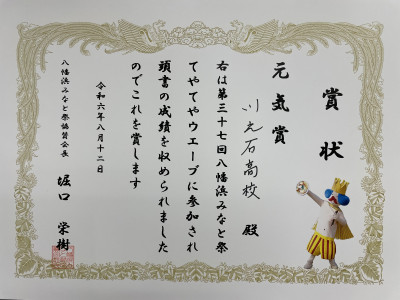 賞状
元気賞
川之石高校 殿
右は第三十七回八幡浜みなと祭
てやてやウエーブに参加され
頭書の成績を収められました
のでこれを賞します
令和六年八月十二日
八幡浜みなと祭協賛会長 堀口 栄樹